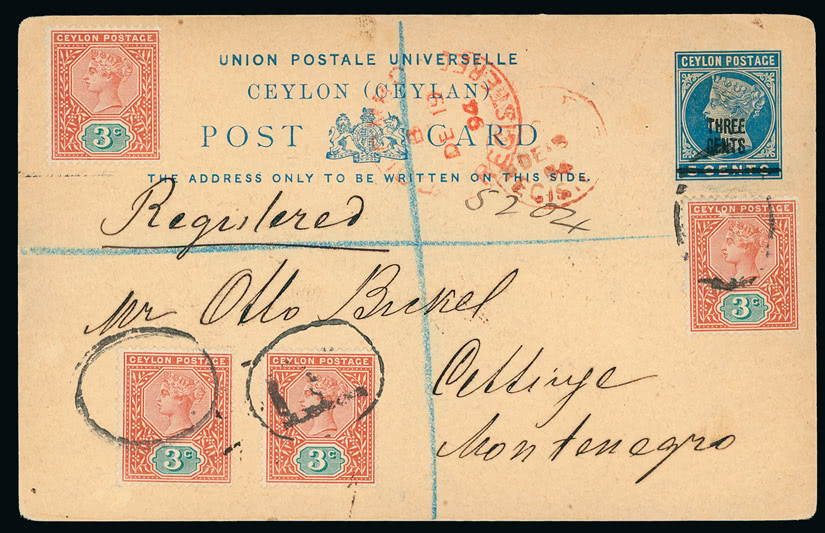 CEYLON POSTAGE
3C
UNION POSTALE UNIVERSELLE
CEYLON (CEYLAN)
POST CARD
THE ADDRESS ONLY TO BE WRITTEN ON THIS SIDE.
CEYLON POSTAGE
THREE
CENTS
5 CENTS
REGISTERED
DE 15
94
5204
Registered
CEYLON POSTAGE
3C
Mr Otto Bickel
Cettinje
Montenegro
CEYLON POSTAGE
3C
CEYLON POSTAGE
3C